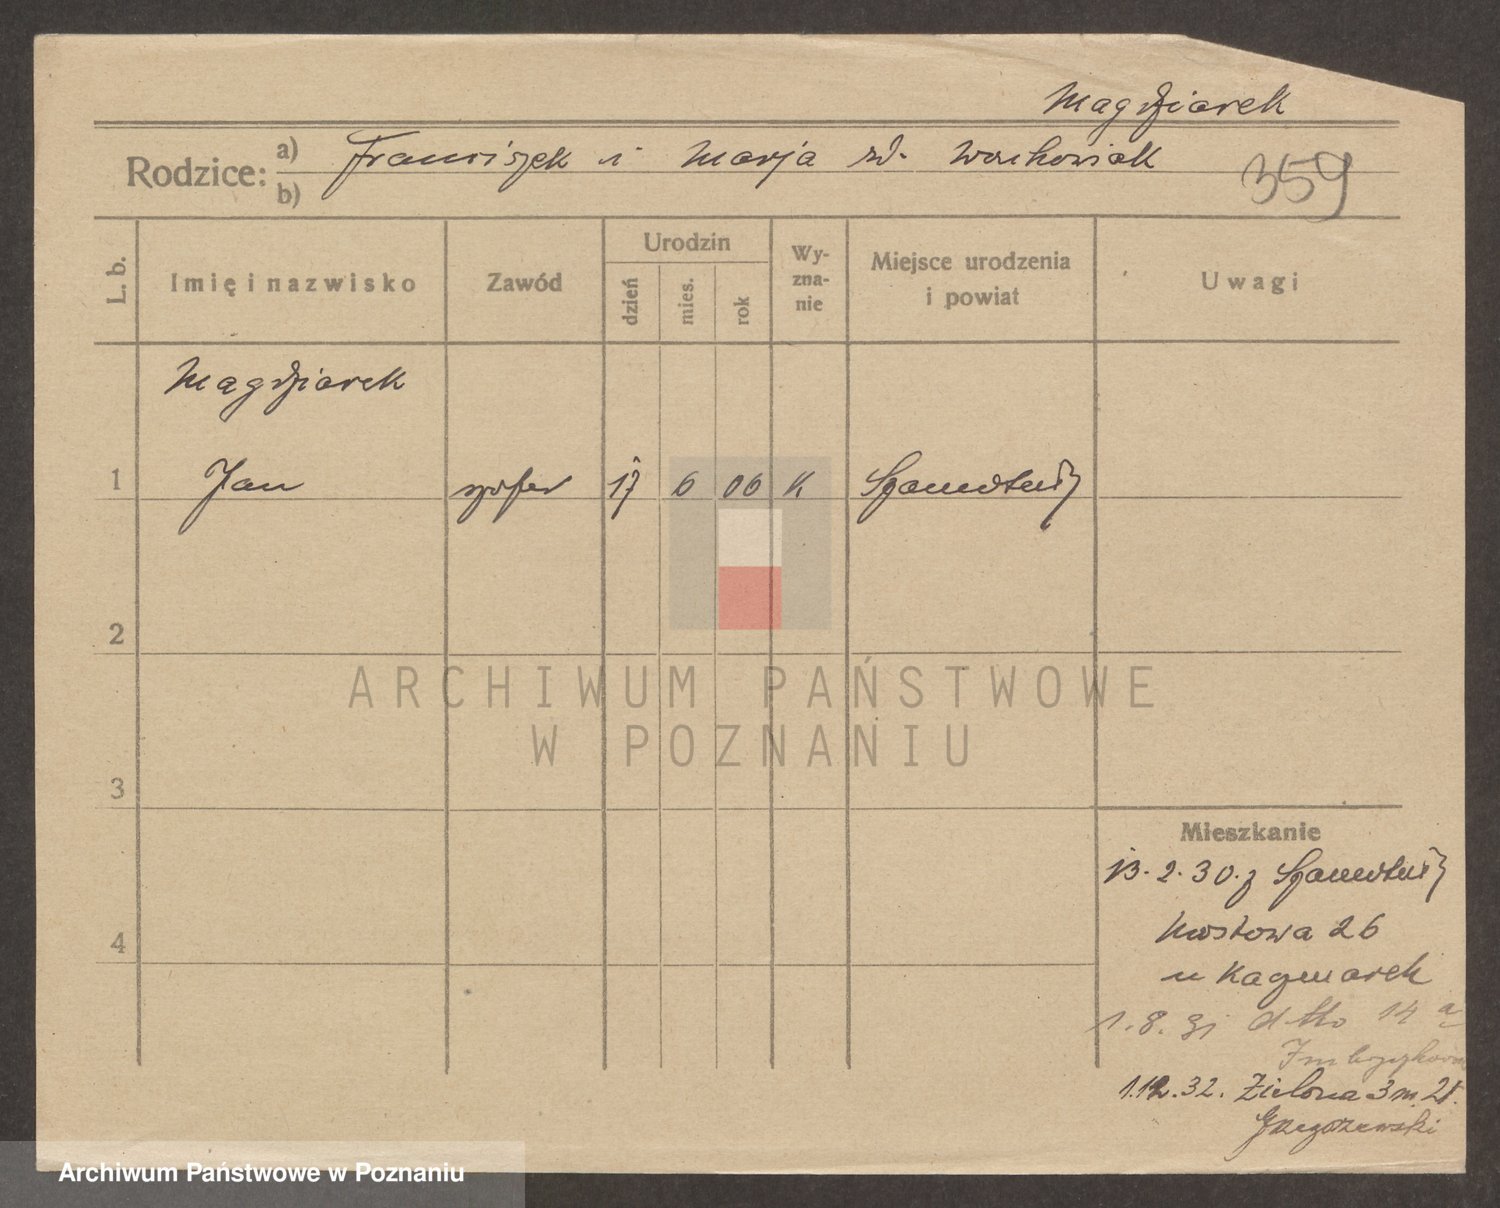 Magdziarek
Rodzice: a) Franciszek i Marja zd. Wachowiak
b)
359
L. b. Imię i nazwisko Zawód Urodzin dzień mies. rok Wy-zna-nie Miejsce urodzenia i powiat Uwagi
Magdziarek
1 Jan szofer 17 6 06 K Szamotuły
2
ARCHIWUM PAŃSTWOWE
W POZNANIU
3
Mieszkanie
13.2.30. z Szamotuły
4 Mostowa 26
u Kaczmarek
1.8.31 dtto 14 a
1.12.32. Zielona 3 m. 21.
Archiwum Państwowe w Poznaniu